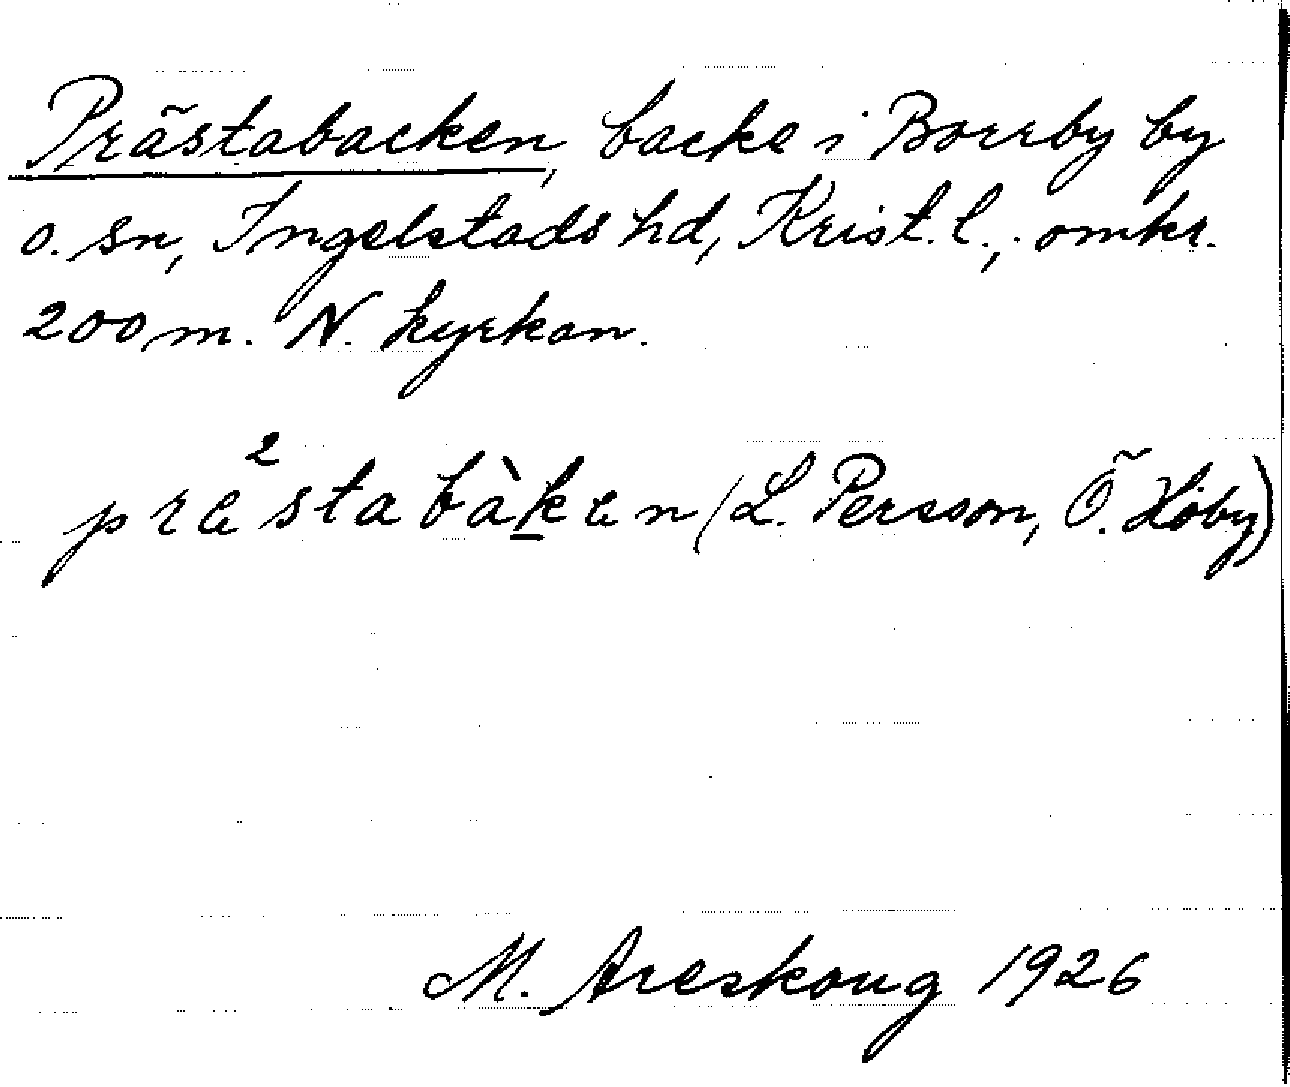 Prästabacken, backe i Borrby by
o. sn, Ingelstads hd, Krist. l., omkr.
200 m. N. kyrkan.
præ²stabàk̲en (L. Persson, Ö. Hoby)
M. Areskoug 1926